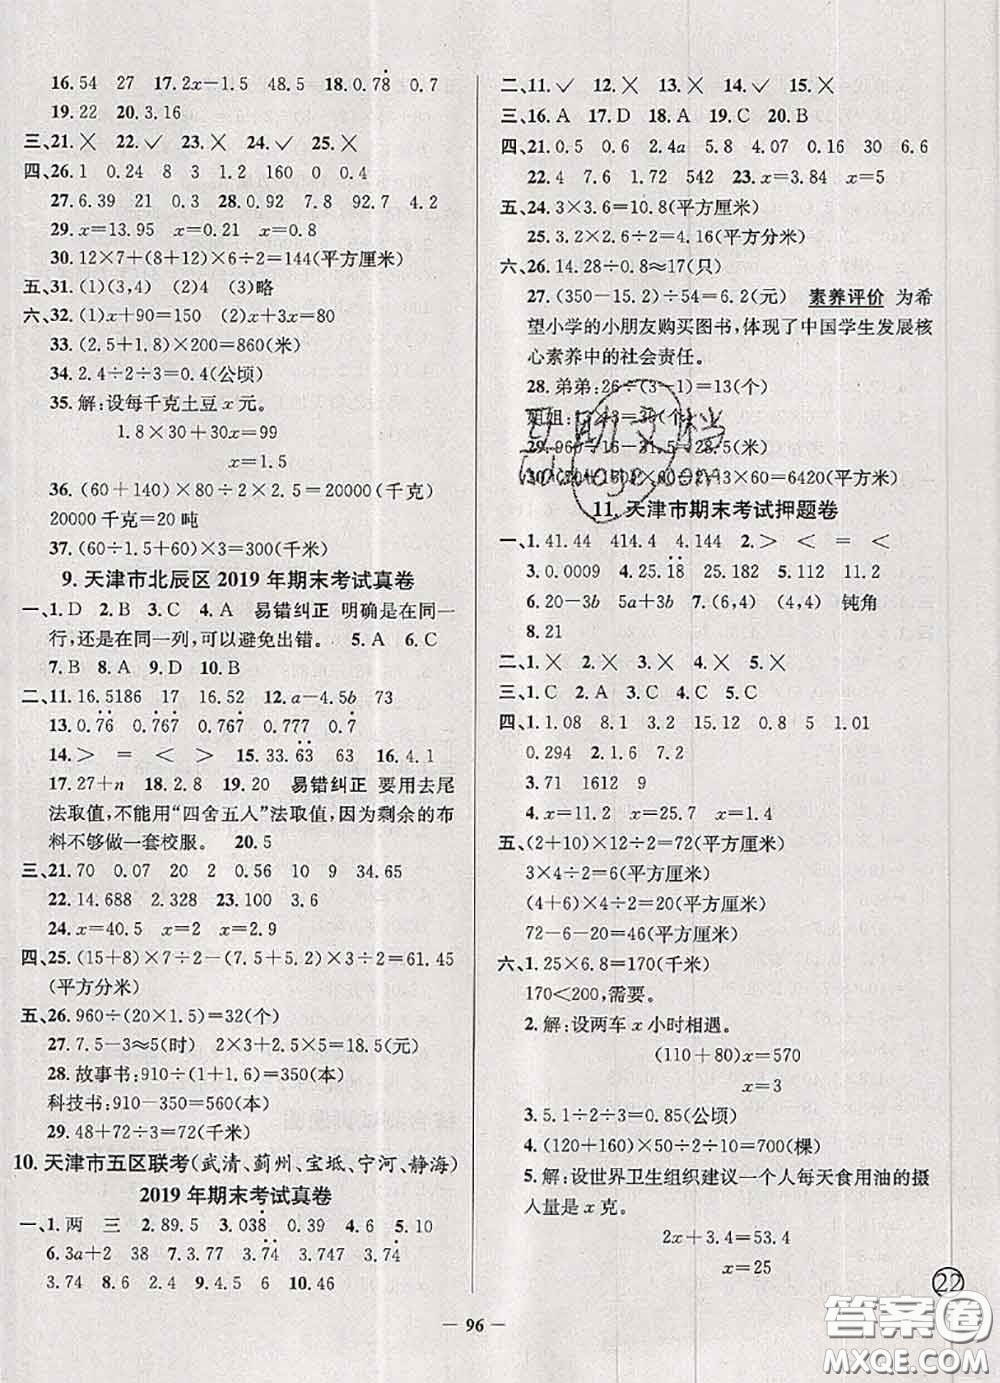 16.54 27 17.2x－1.5 48.5 18.0.78̇ 0.7
19.22 20.3.16
三、21.╳ 22.✓ 23.╳ 24.✓ 25.╳
四、26.1 0.24 8 3 1.2 160 0 0.4
27.6.39 21 0.2 28.0.92 7.8 92.7 4.2
29.x＝13.95 x＝0.21 x＝0.8
30.12×7＋(8＋12)×6÷2＝144(平方厘米)
五、31.(1)(3,4) (2)4 (3)略
六、32.(1)x＋90＝150 (2)x＋3x＝80
33.(2.5＋1.8)×200＝860(米)
34.2.4÷2÷3＝0.4(公顷)
35.解:设每千克土豆 x 元。
1.8×30＋30x＝99
x＝1.5
36.(60＋140)×80÷2×2.5＝20000(千克)
20000 千克＝20 吨
37.(60÷1.5＋60)×3＝300(千米)
9. 天津市北辰区 2019 年期末考试真卷
一、1.D 2.B 3.C 4.A 易错纠正 明确是在同一
行,还是在同一列,可以避免出错。 5.A 6.C
7.B 8.A 9.D 10.B
二、11.16.5186 17 16.52 12.a－4.5b 73
13.0.7̇6̇ 0.7̇67̇ 0.767 0.777 0.7̇
14.＞ ＝ ＜ ＞ 15.33.6̇3̇ 63 16.4.1
17.27＋n 18.2.8 19.20 易错纠正 要用去尾
法取值,不能用“四舍五人”法取值,因为剩余的布
料不够做一套校服。 20.5
三、21.70 0.07 20 2 0.56 10 9 34.65
22.14.688 2.328 23.100 3.6
24.x＝40.5 x＝2 x＝2.9
四、25.(15＋8)×7÷2－(7.5＋5.2)×3÷2＝61.45
(平方分米)
五、26.960÷(20×1.5)＝32(个)
27.7.5－3≈5(时) 2×3＋2.5×5＝18.5(元)
28.故事书:910÷(1＋1.6)＝350(本)
科技书:910－350＝560(本)
29.48＋72÷3＝72(千米)
10. 天津市五区联考(武清、蓟州、宝坻、宁河、静海)
2019 年期末考试真卷
一、1.两 三 2.89.5 3.0.038̇ 0.04 4.5 5.10
6.3a＋2 38 7.3.7̇4̇ 3.747 3.74̇
3.74 8.6 2.4 9.4.5 6 10.46
二、11.✓ 12.╳ 13.╳ 14.✓ 15.╳
三、16.A 17.D 18.A 19.C 20.B
四、21.0.5 0.6 2.4a 5.8 4.07 0.16 30 6.6
22.4 7.6 1.72 542 23.x＝3 x＝5
五、24.3×3.6＝10.8(平方厘米)
25.3.2×2.6÷2＝4.16(平方分米)
六、26.14.28÷0.8≈17(只)
27.(350－15.2)÷54＝6.2(元) 素养评价 为希
望小学的小朋友购买图书,体现了中国学生发展核
心素养中的社会责任。
28.弟弟:26÷(3－1)＝13(个)
姐姐:3×13＝39(个)
29.960÷16－31.5＝28.5(米)
×60＝6420(平方米)
11. 天津市期末考试押题卷
一、1.41.44 414.4 4.144 2.＞ ＜ ＝ ＜
3.0.0009 4.25.1̇8̇ 25.18 5.86.4
6.20－3b 5a＋3b 7.(6,4) (4,4) 钝角
8.21
二、1.╳ 2.╳ 3.╳ 4.╳ 5.╳
三、1.C 2.A 3.C 4.D 5.C
四、1.1.08 8.1 3.2 15.12 0.8 5 1.01
0.294 2.1.6
3.71 1612 9
4.x＝11.2 x＝25 x＝6
五、(2＋10)×12÷2＝72(平方厘米)
3×4÷2＝6(平方厘米)
(4＋6)×4÷2＝20(平方厘米)
72－6－20＝46(平方厘米)
六、1.25×6.8＝170(千米)
170＜200,需要。
2.解:设两车 x 小时相遇。
(110＋80)x＝570
x＝3
3.5.1÷2÷3＝0.85(公顷)
4.(120＋160)×50÷2÷10＝700(棵)
5.解:设世界卫生组织建议一个人每天食用油的摄
人量是 x 克。
2x＋3.4＝53.4
x＝25
22
－ 96 －
互助文档
答案圈
MXQE.COM